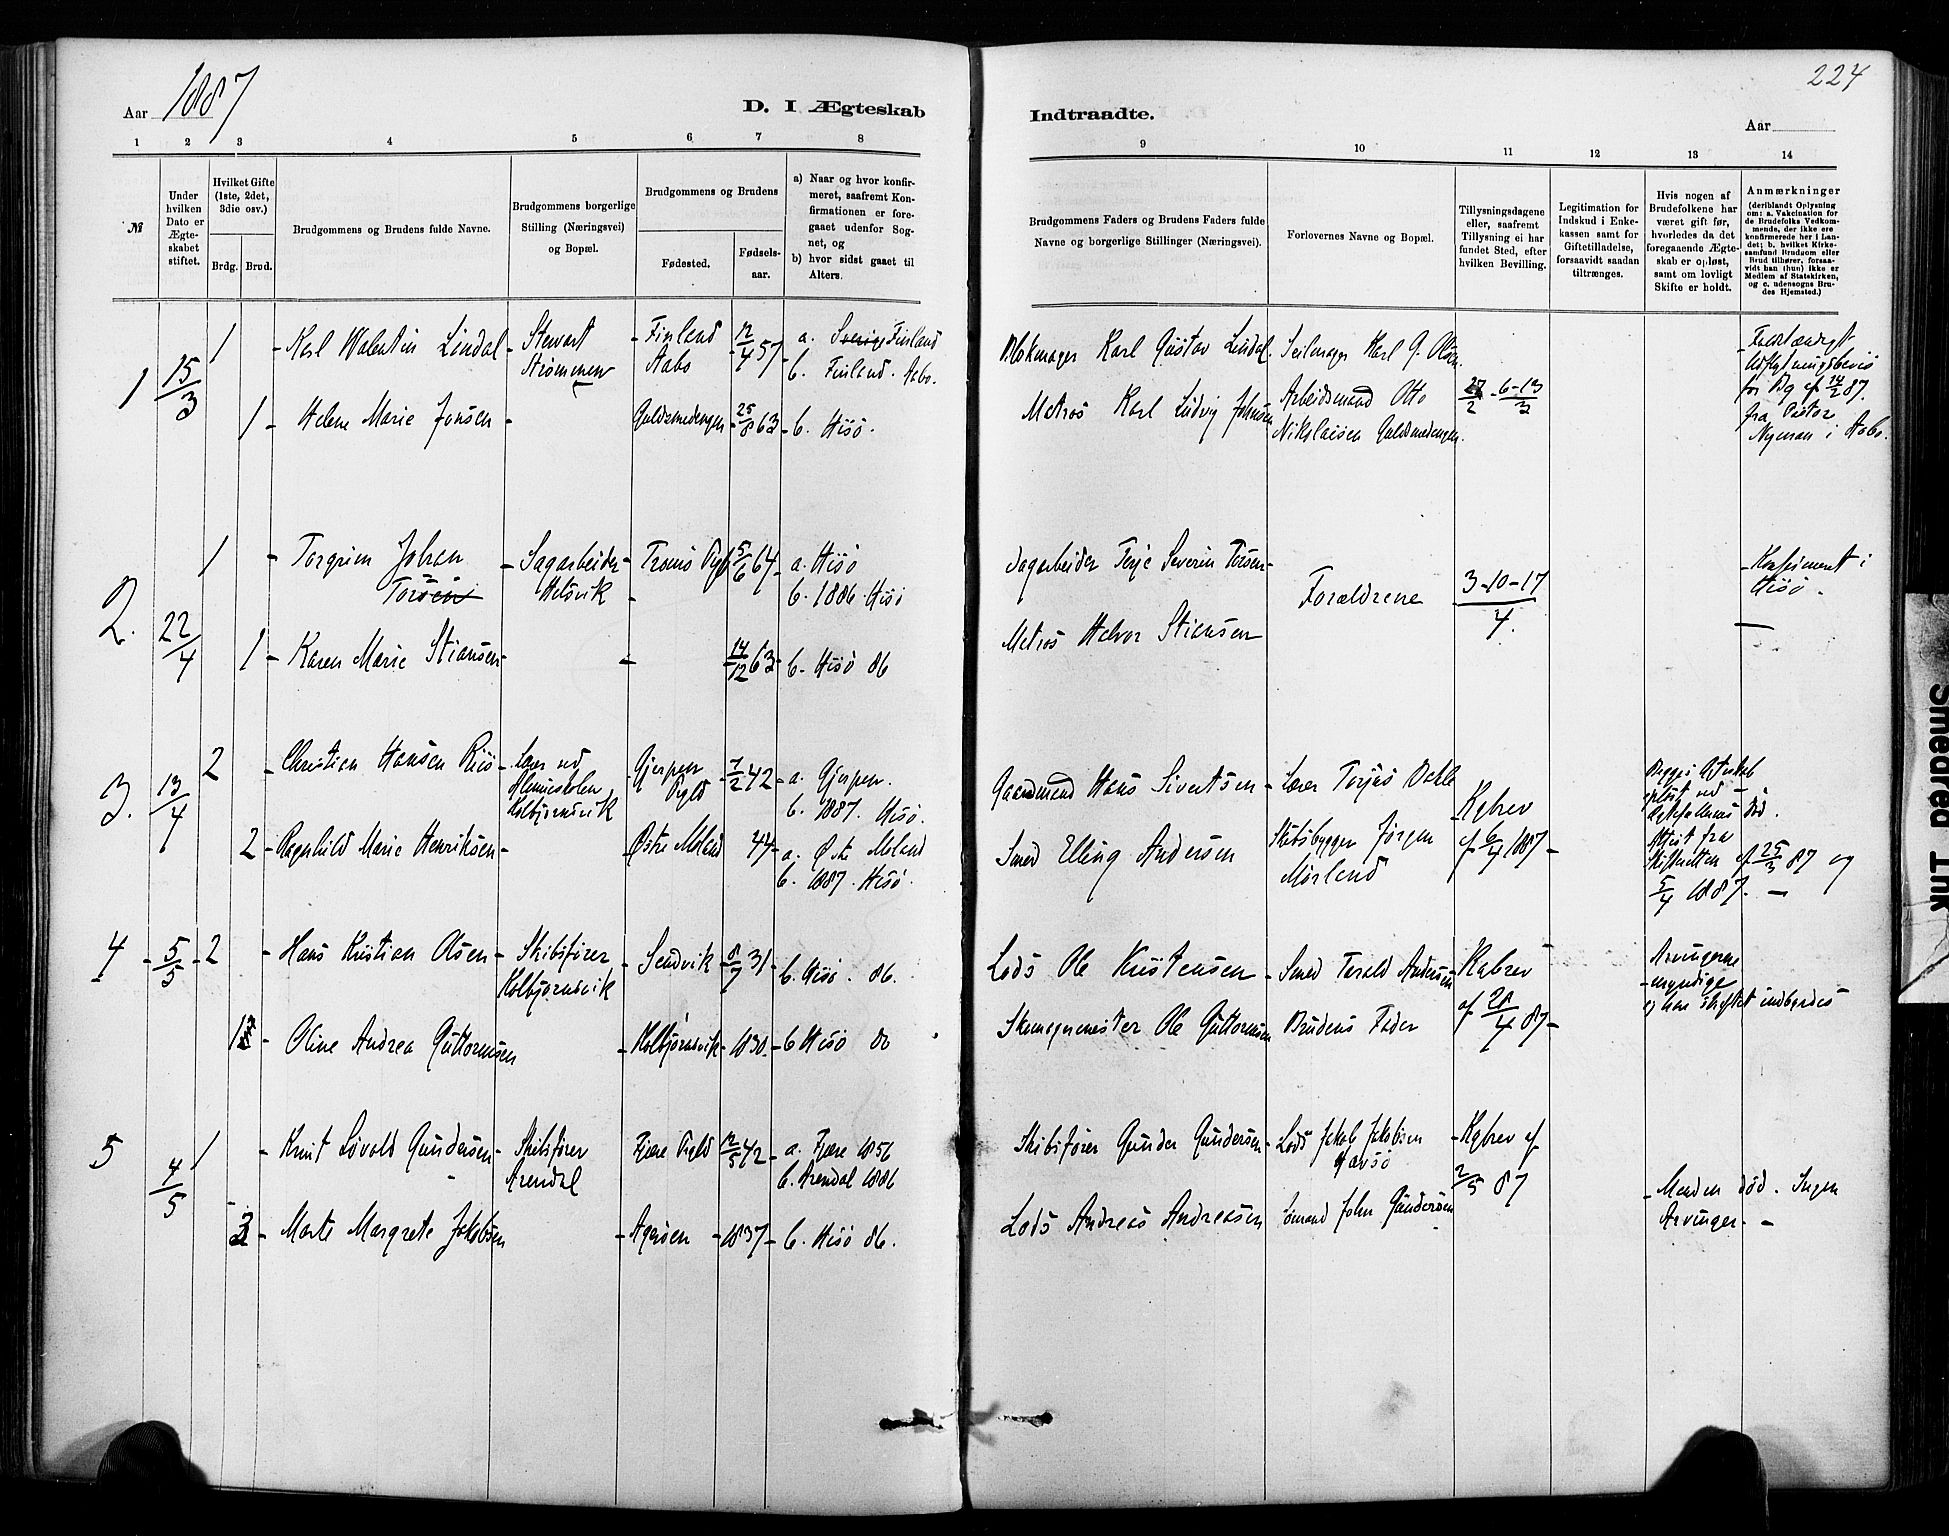 1887
224
Aar
D. I Ægteskab
Indtraadte.
Aar
1 2 3 4 5 6 7 8
9 10 11 12 13 14
№
Under hvilken Dato er Ægteskabet stiftet.
Hvilket Gifte (1ste, 2det, 3die osv.)
Brdg. Brud.
Brudgommens og Brudens fulde Navne.
Brudgommens borgerlige Stilling (Næringsvei) og Bopæl.
Brudgommens og Brudens
Fødested.
Fødselsaar.
a) Naar og hvor konfirmeret, saafremt Konfirmationen er foregaaet udenfor Sognet, og
b) hvor sidst gaaet til Alters.
Brudgommens Faders og Brudens Faders fulde Navne og borgerlige Stillinger (Næringsvei).
Forlovernes Navne og Bopæl.
Tillysningsdagene eller, saafremt Tillysning ei har fundet Sted, efter hvilken Bevilling.
Legitimation for Indskud i Enkekassen samt for Giftetilladelse, forsaavidt saadan tiltrænges.
Hvis nogen af Brudefolkene har været gift før, hvorledes da det foregaaende Ægteskab er opløst, samt om lovligt Skifte er holdt.
Anmærkninger (deriblandt Oplysning om: a. Vakcination for de Brudefolks Vedkommende, der ikke ere konfirmerede her i Landet; b. hvilket Kirkesamfund Brudgom eller Brud tilhører, forsaavidt han (hun) ikke er Medlem af Statskirken, og c. udensogns Brudes Hjemsted.)
1 15/3 1 - Karl Walentin Lindal - Stewart Strømmen - Finland Aabo - 12/4 57 - a. Sverige Finland b. Finland. Aabo.
Blokmager Karl Gustav Lindal. Seilmager Karl G. Olsen
1 - Helene Marie Jonsen - Guldsmedengen - 25/8 63 - b. Hisø.
Matros Karl Ludvig Johnsen Arbeidsmand Otto Nikolaisen Guldsmedengen. 27/2 - 6 - 13/3
Udflytningsbevis for Bg af 14/2 87. fra Pastor Nyman i Aabo.
2. 22/4 1 - Torgrim Johan Torsen - Sagarbeider Helsvik - Tromø Pgd 5/6 64 - a. Hisø b. 1886. Hisø
Sagarbeider Terje Severin Torsen - Forældrene 3-10-17/4.
- Konfirment i Hisø.
1 - Karen Marie Stiansen - 14/12 63 - b. Hisø 86
Matros Halvor Stiansen
3. 13/4 2 - Christian Hansen Riis - Lærer ved Kolbjørnsvik - Gjerpen Pgld - 7/2 42 - a. Gjerpen. b. 1887. Hisø.
Gaardmand Hans Sivertsen - Lærer Torjus Dahle Kgbrev af 6/4 1887 -
2 - Ragnhild Marie Henriksen - Østre Moland 44 - a. Østre Moland b. 1887. Hisø.
Smed Elling Andersen Skibsbygger Jørgen Mørland
Ægtefællernes Død. Attest fra Skifteretten af 25/3 87 og 5/4 1887. -
4 - 5/5 - 2 - Hans Kristian Olsen - Skibsfører Kolbjørnsvik - Sandvik - 8/7 31 - b. Hisø. 86.
Lods Ole Kristensen - Smed Terald Andersen - Kgbrev af 28/4 87 -
Arvingerne myndige
1 - Oline Andrea Guttormsen - Kolbjørnsvik - 1830 - b Hisø do
Skomagermester Ole Guttormsen Brudens Fader
5 4/5 1 - Knut Løvold Gundersen - Skibsfører Arendal Fjære Pgld 12/5 42 - a. Fjære 1856 b. Arendal 1886
Skibsfører Gunder Gundersen - Lods Jakob Jakobsen Havsø - Kgbrev af 2/5 87
2 - Marte Margrete Jakobsen - Agerøen - 1837 - b. Hisø 86.
Lods Andreas Andreasen Sømand John Gundersen
- Manden død. Ingen Arvinger. -
Smeared Ink